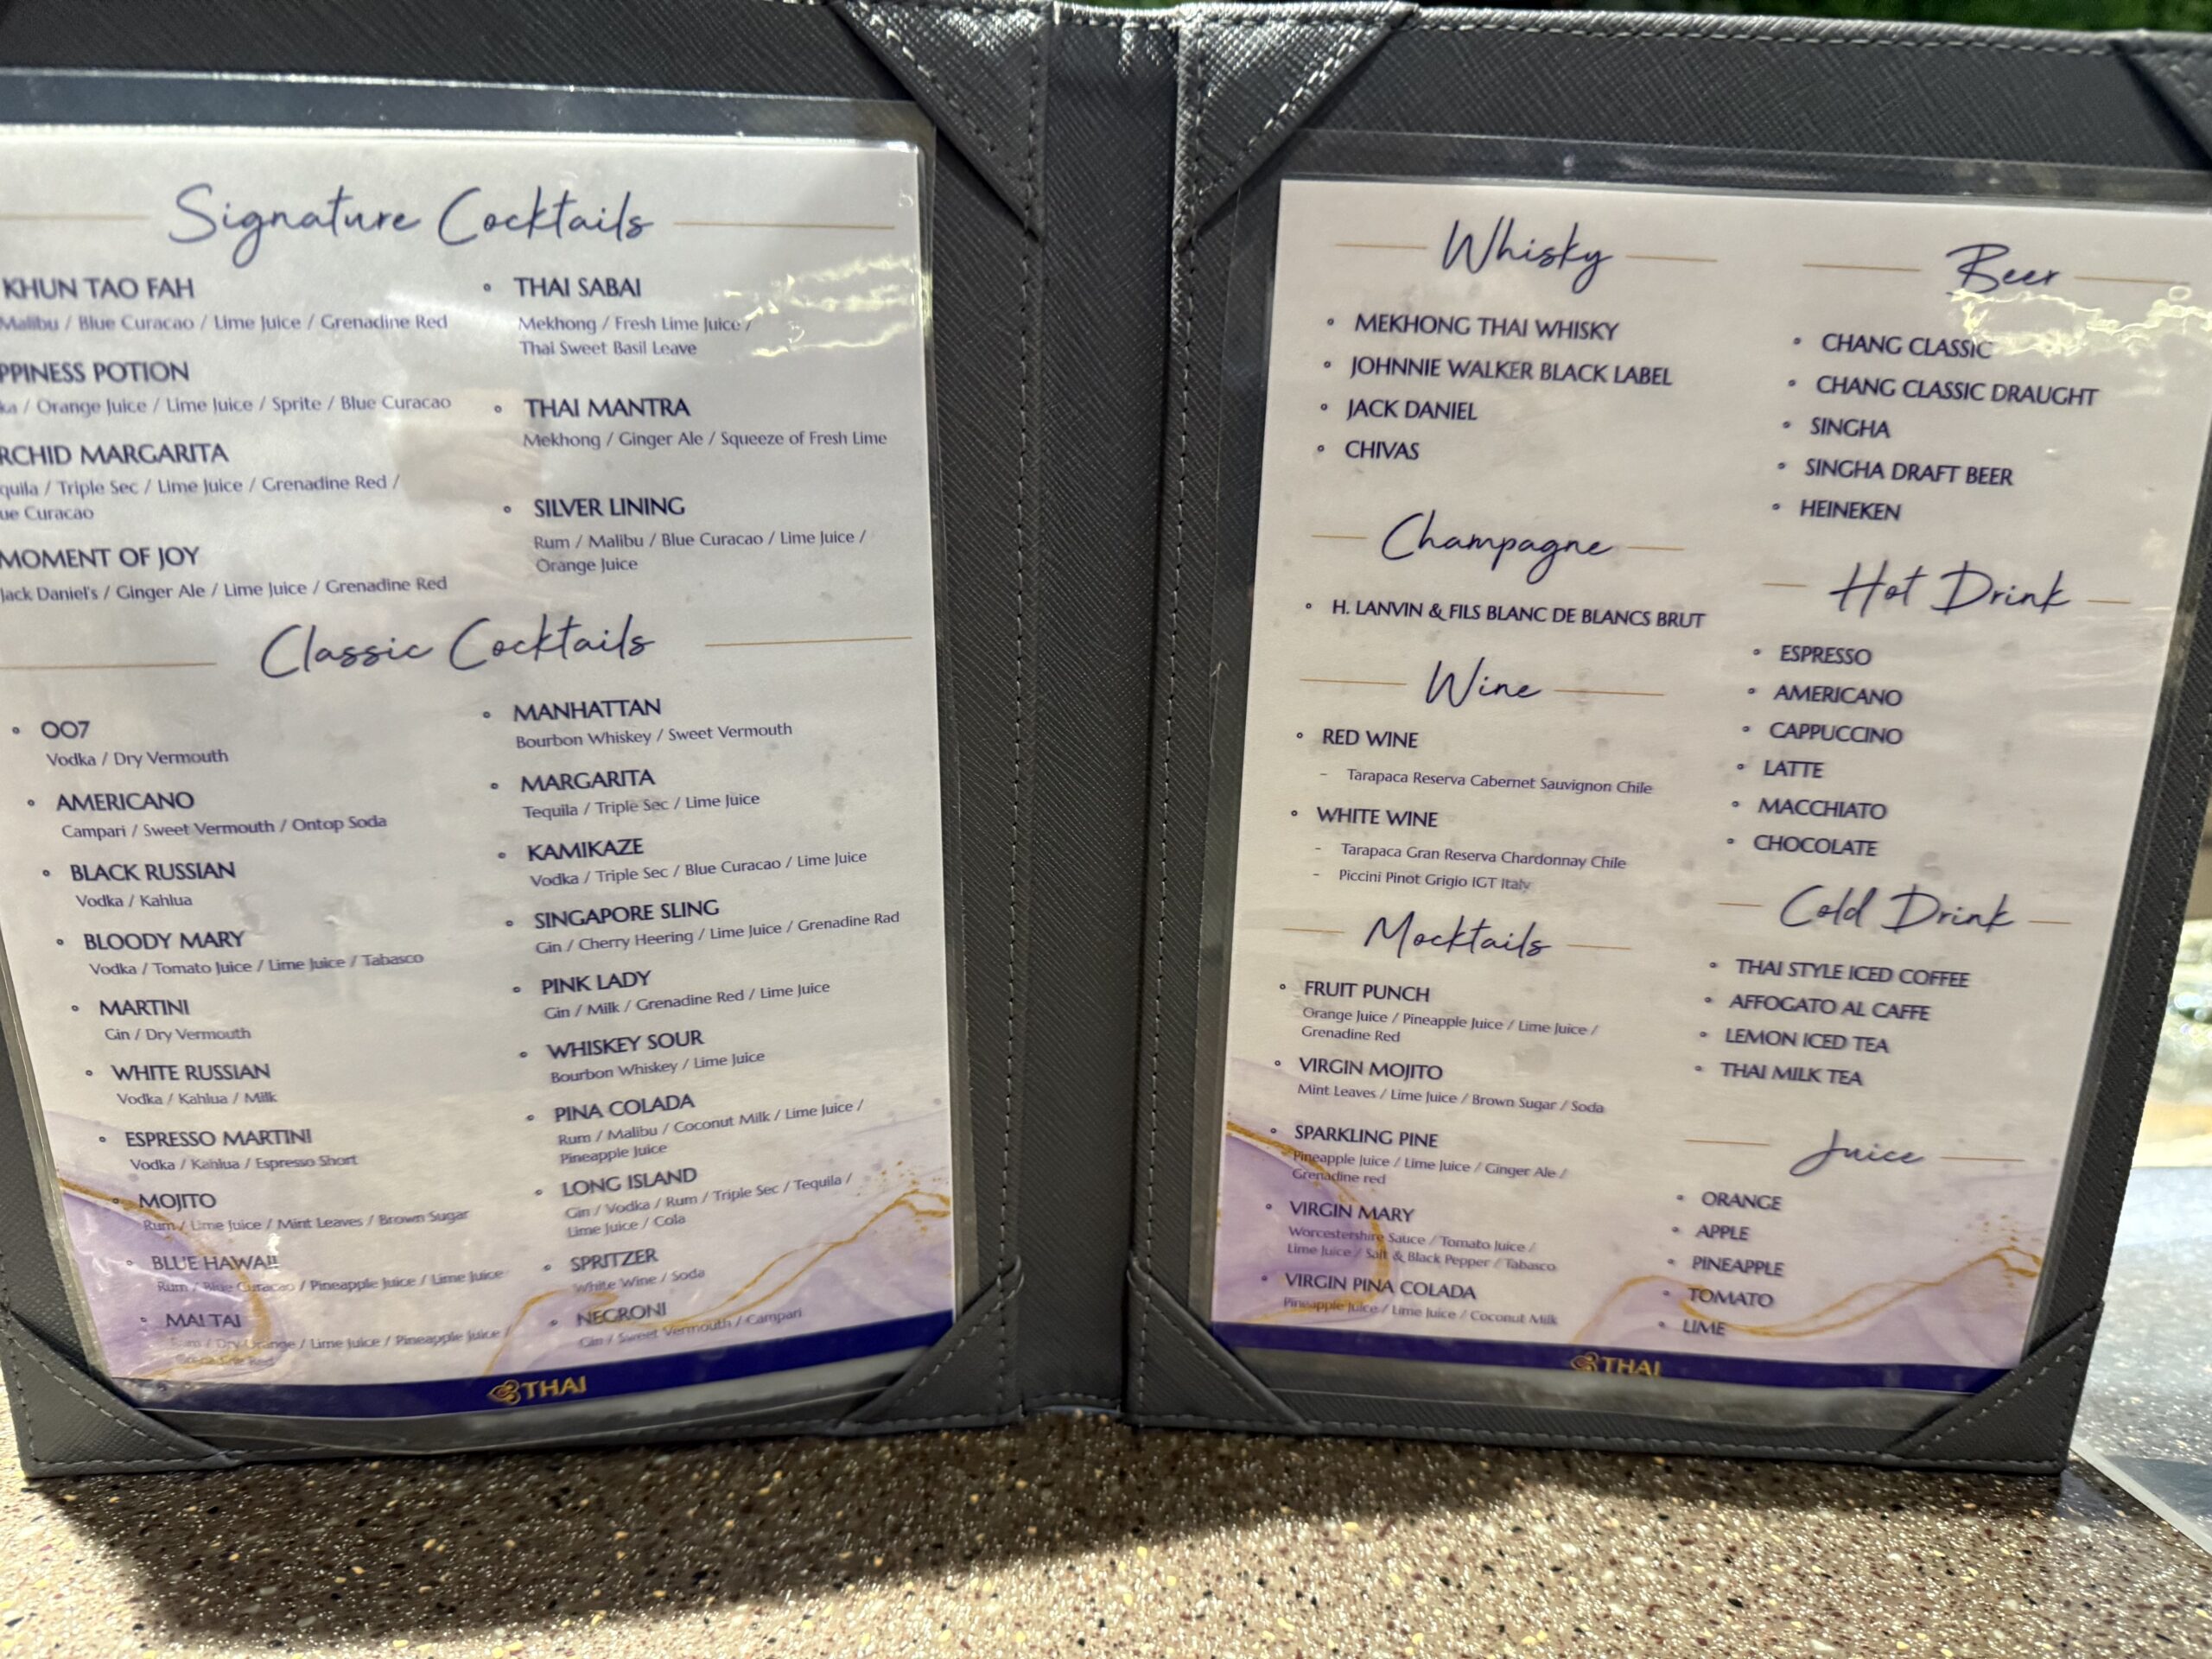 Signature Cocktails
KHUN TAO FAH
Malibu / Blue Curacao / Lime Juice / Grenadine Red
PPINESS POTION
ka / Orange Juice / Lime Juice / Sprite / Blue Curacao
RCHID MARGARITA
quila / Triple Sec / Lime Juice / Grenadine Red /
ue Curacao
MOMENT OF JOY
Jack Daniel's / Ginger Ale / Lime Juice / Grenadine Red
THAI SABAI
Mekhong / Fresh Lime Juice /
Thai Sweet Basil Leave
THAI MANTRA
Mekhong / Ginger Ale / Squeeze of Fresh Lime
SILVER LINING
Rum / Malibu / Blue Curacao / Lime Juice /
Orange Juice
Classic Cocktails
007
Vodka / Dry Vermouth
AMERICANO
Campari / Sweet Vermouth / Ontop Soda
BLACK RUSSIAN
Vodka / Kahlua
BLOODY MARY
Vodka / Tomato Juice / Lime Juice / Tabasco
MARTINI
Gin / Dry Vermouth
WHITE RUSSIAN
Vodka / Kahlua / Milk
ESPRESSO MARTINI
Vodka / Kahlua / Espresso Short
MOJITO
Rum / Lime Juice / Mint Leaves / Brown Sugar
BLUE HAWAII
Rum / Blue Curacao / Pineapple Juice / Lime Juice
MAI TAI
Rum / Dry Orange / Lime Juice / Pineapple Juice /
Red
MANHATTAN
Bourbon Whiskey / Sweet Vermouth
MARGARITA
Tequila / Triple Sec / Lime Juice
KAMIKAZE
Vodka / Triple Sec / Blue Curacao / Lime Juice
SINGAPORE SLING
Gin / Cherry Heering / Lime Juice / Grenadine Rad
PINK LADY
Gin / Milk / Grenadine Red / Lime Juice
WHISKEY SOUR
Bourbon Whiskey / Lime Juice
PINA COLADA
Rum / Malibu / Coconut Milk / Lime Juice /
Pineapple Juice
LONG ISLAND
Gin / Vodka / Rum / Triple Sec / Tequila /
Lime Juice / Cola
SPRITZER
White Wine / Soda
NEGRONI
Gin / Sweet Vermouth / Campari
THAI
Whisky
MEKHONG THAI WHISKY
JOHNNIE WALKER BLACK LABEL
JACK DANIEL
CHIVAS
Champagne
H. LANVIN & FILS BLANC DE BLANCS BRUT
Wine
RED WINE
- Tarapaca Reserva Cabernet Sauvignon Chile
WHITE WINE
- Tarapaca Gran Reserva Chardonnay Chile
- Piccini Pinot Grigio IGT Italy
Mocktails
FRUIT PUNCH
Orange Juice / Pineapple Juice / Lime Juice /
Grenadine Red
VIRGIN MOJITO
Mint Leaves / Lime Juice / Brown Sugar / Soda
SPARKLING PINE
Pineapple Juice / Lime Juice / Ginger Ale /
Grenadine red
VIRGIN MARY
Worcestershire Sauce / Tomato Juice /
Lime Juice / Salt & Black Pepper / Tabasco
VIRGIN PINA COLADA
Pineapple Juice / Lime Juice / Coconut Milk
Beer
CHANG CLASSIC
CHANG CLASSIC DRAUGHT
SINGHA
SINGHA DRAFT BEER
HEINEKEN
Hot Drink
ESPRESSO
AMERICANO
CAPPUCCINO
LATTE
MACCHIATO
CHOCOLATE
Cold Drink
THAI STYLE ICED COFFEE
AFFOGATO AL CAFFE
LEMON ICED TEA
THAI MILK TEA
Juice
ORANGE
APPLE
PINEAPPLE
TOMATO
LIME
THAI